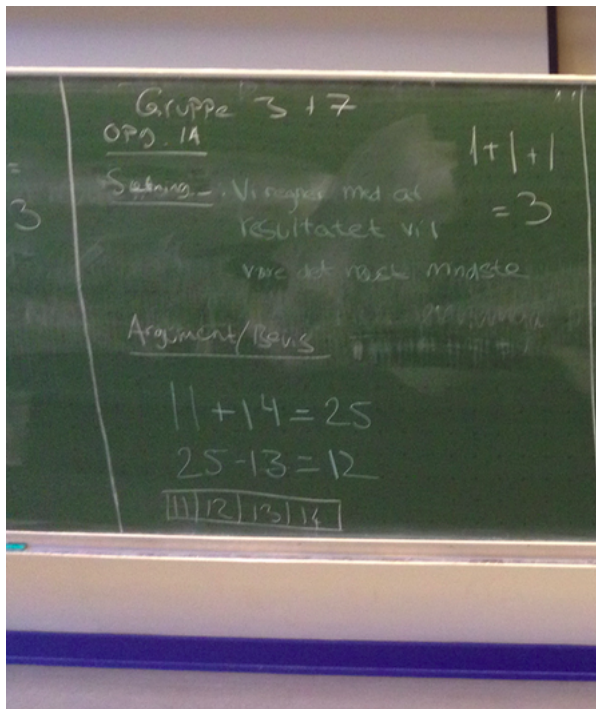 Gruppe 3 + 7
OPG. 1A
1+1+1
= 3
Sætning - Vi regner med at
resultatet vil
være det næste mindste
Argument/Bevis
11+14=25
25-13=12
11 12 13 14
3